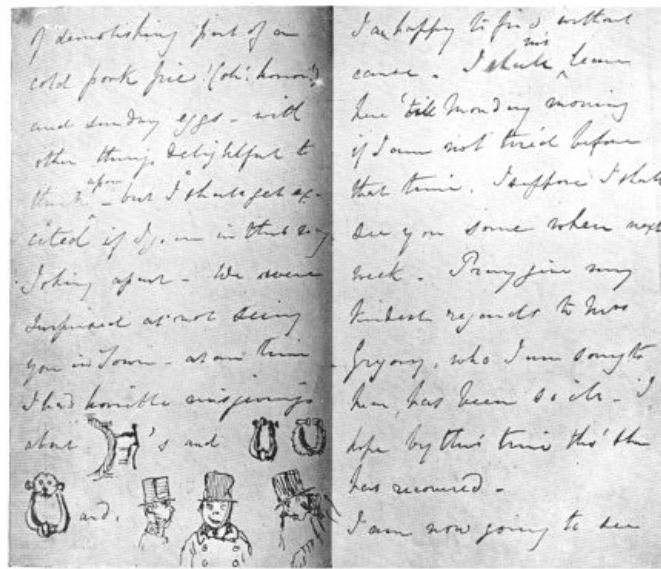 of demolishing part of a
cold pork pie! (oh! horror!)
and sunday eggs – with
other things delightful to
think upon – but I shall get ex-
cited if I go on in this way.
Joking apart – We were
surprised at not seeing
you in Town – at one time
I had horrible misgivings
about 's and
and,
I am happy to find without
cause. I shall not leave
here 'till Monday morning
if I am not tired before
that time. I suppose I shall
see you some when next
week – Pray give my
kindest regards to Mrs
Gregory, who I am sorry to
hear, has been so ill – I
hope by this time tho' she
has recovered –
I am now going to see